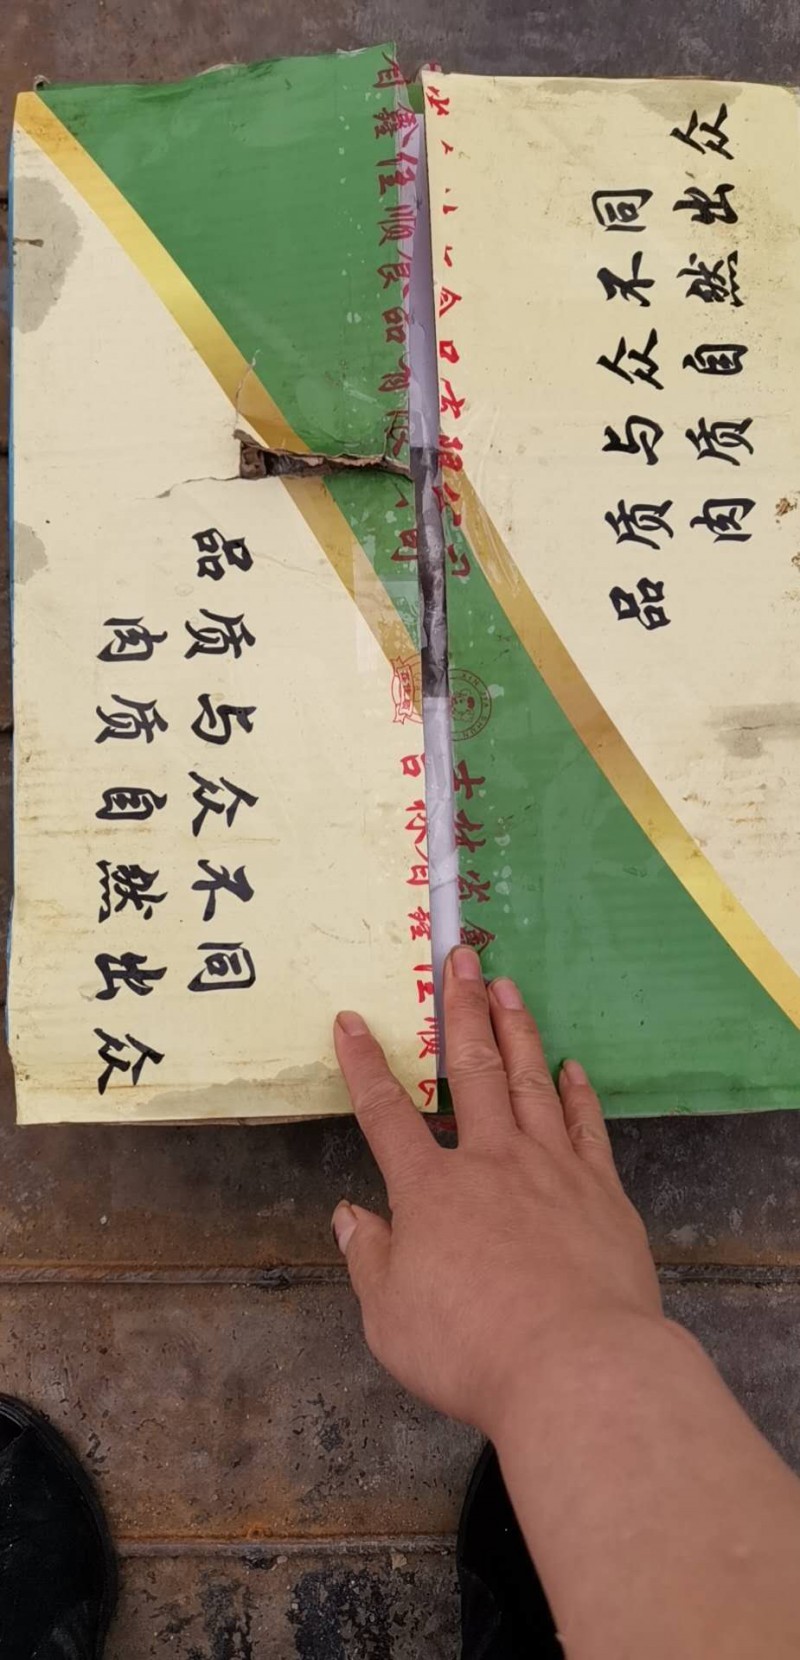 品质与众不同
肉质自然出众
品质与众不同
肉质自然出众
鑫佳顺食品有限公司
吉林省鑫
吉林省鑫佳顺